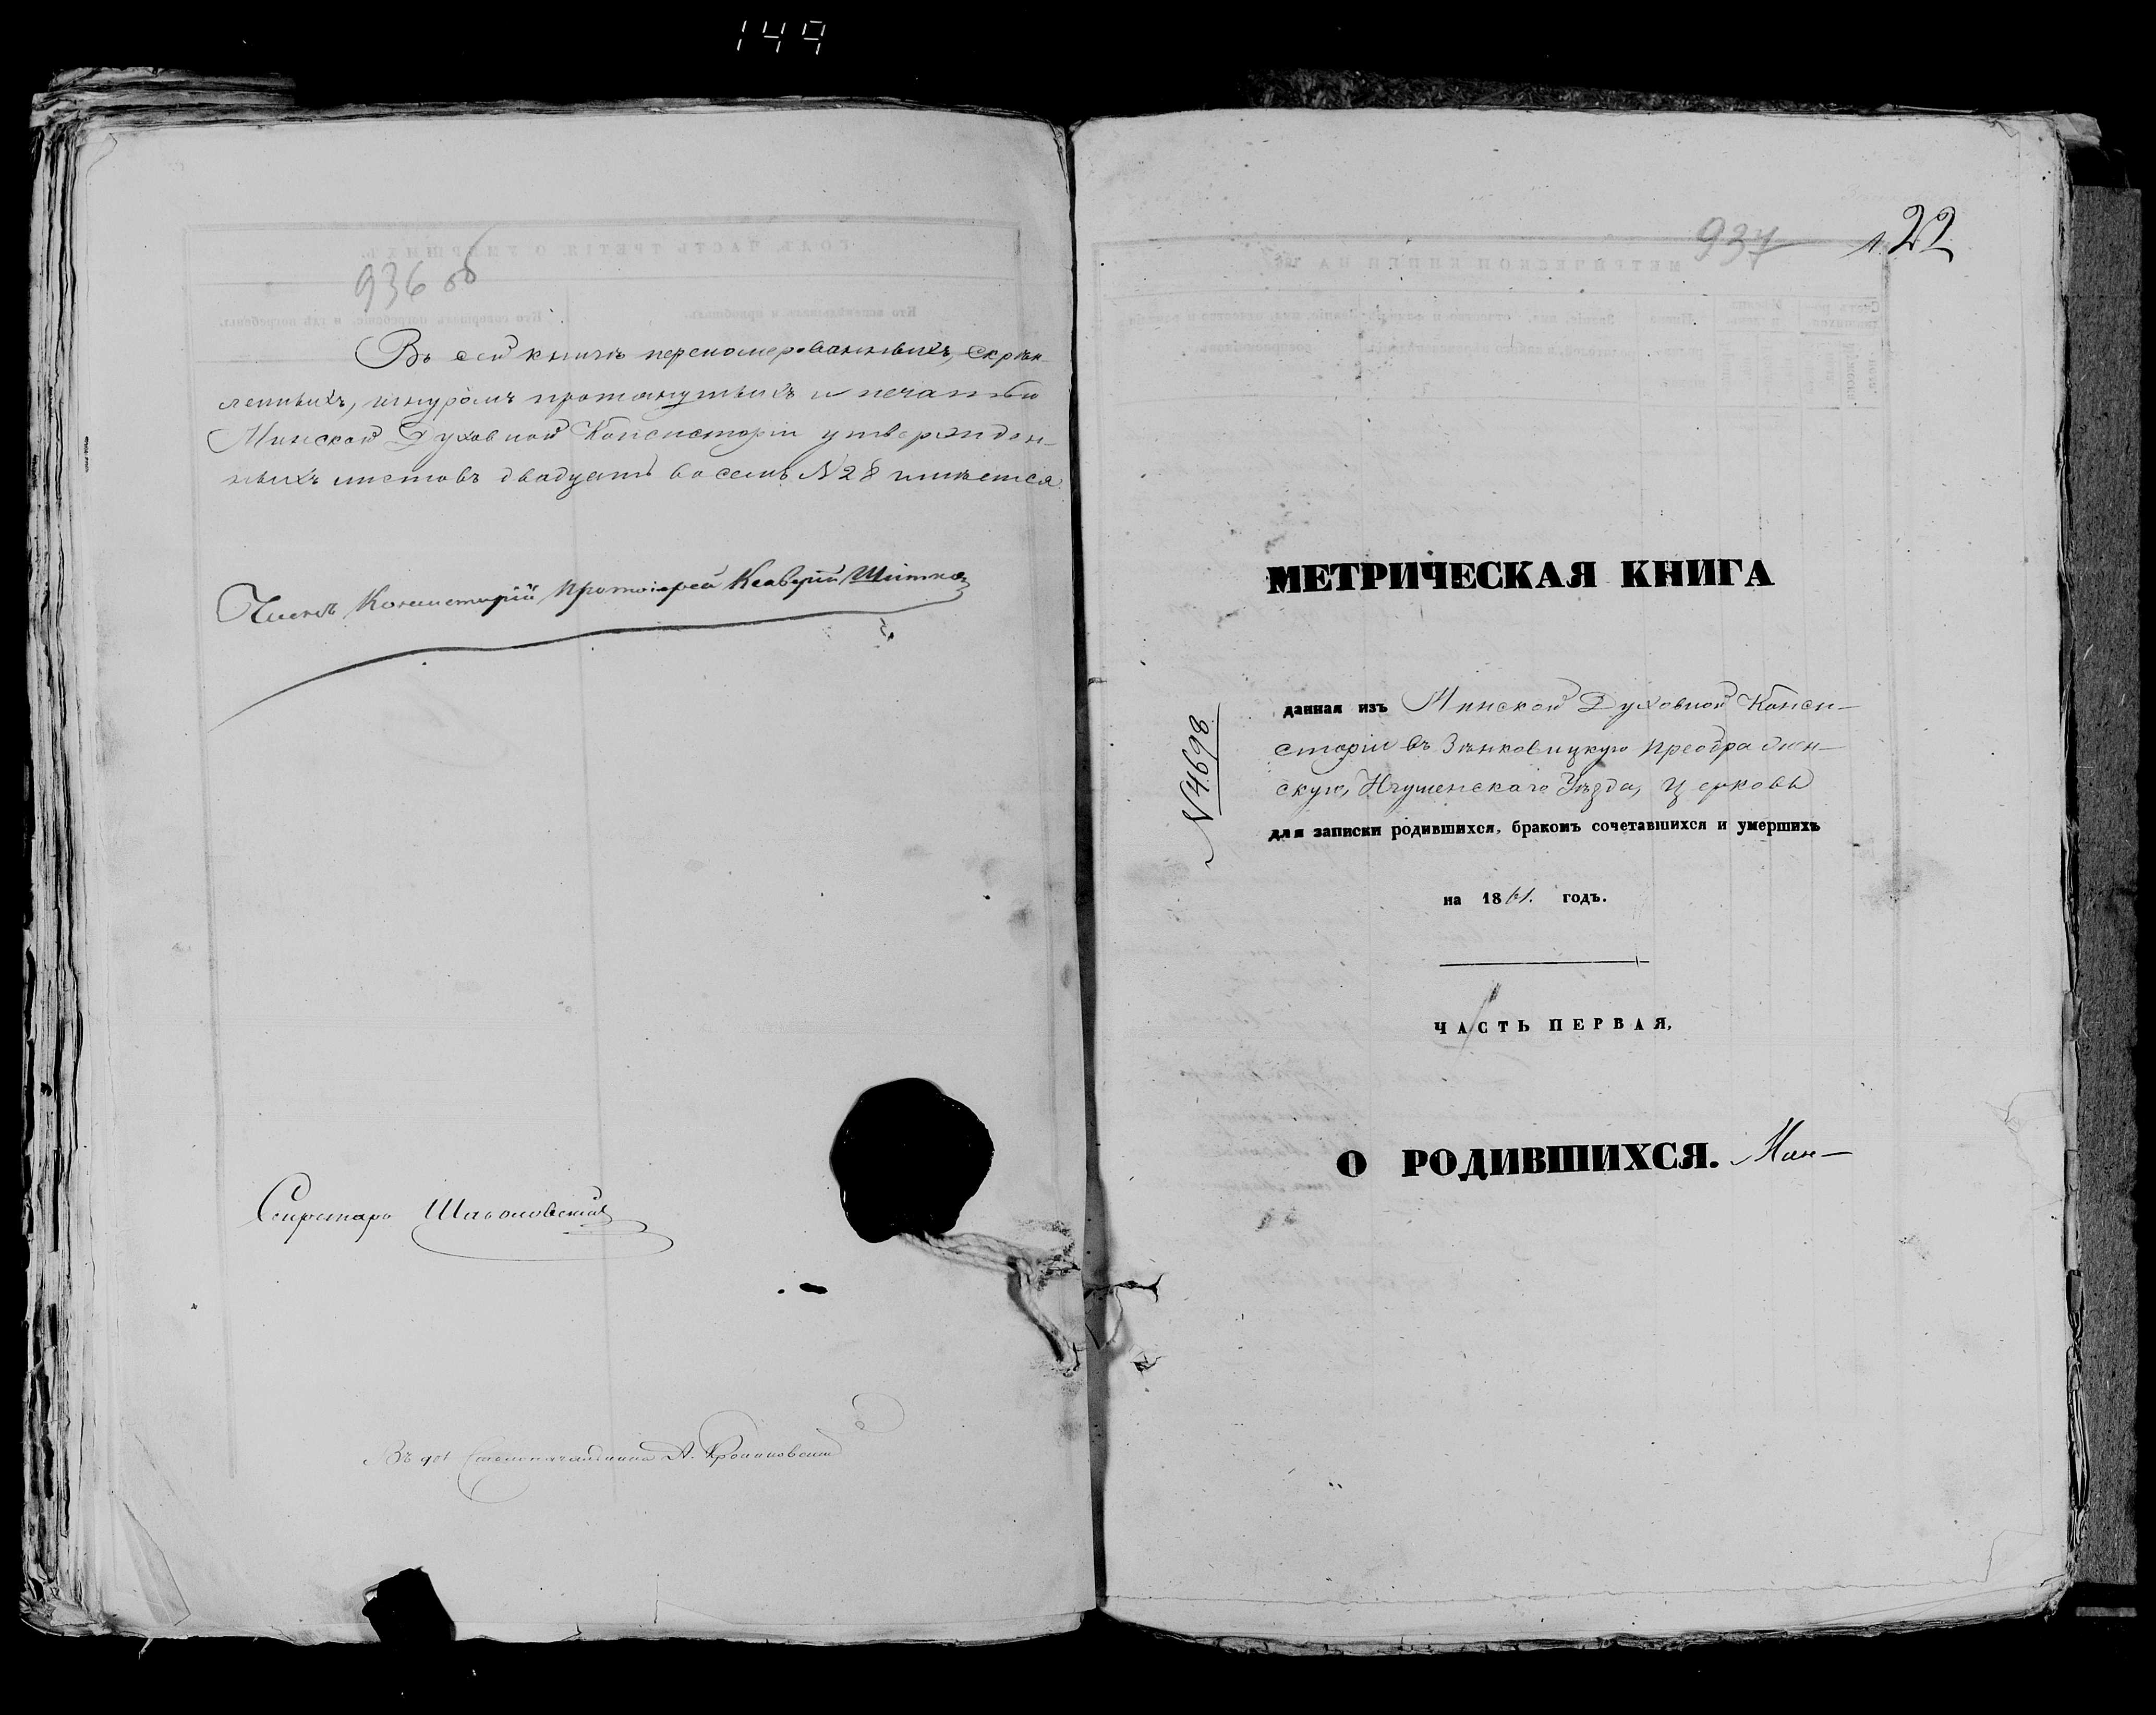 149
936 об
Въ сей книгѣ перенумерованныхъ, скрѣп-
ленныхъ, шнуромъ протянутыхъ и печатью
Минской Духовной Консисторіи утвержден-
ныхъ листовъ двадцать восемь №28 имѣется
Членъ Консисторіи Протоіерей
Секретарь
Столоначальника А.
937
22
МЕТРИЧЕСКАЯ КНИГА
№4698
данная изъ Минской Духовной Конси-
сторіи въ Зѣнковицкую Преображен-
скую, Игуменскаго Уѣзда, Церковь
для записки родившихся, бракомъ сочетавшихся и умершихъ
на 1861. годъ.
ЧАСТЬ ПЕРВАЯ,
О РОДИВШИХСЯ.